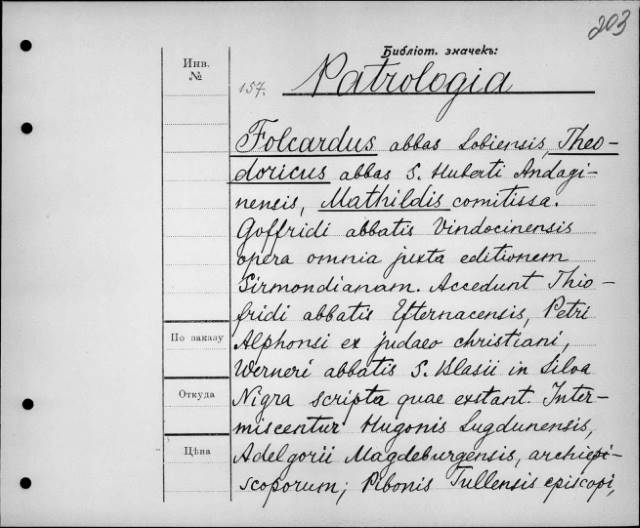 203
Библіот. значекъ:
Инв.
№
157.
Patrologia
Folcardus abbas Lobiensis, Theo-
doricus abbas S. Huberti Andagi-
nensis, Mathildis comitissa.
Goffridi abbatis Vindocinensis
opera omnia juxta editionem
Sirmondianam. Accedunt Thio-
fridi abbatis Efternacensis, Petri
По заказу
Alphonsi ex judaeo christiani,
Werneri abbatis S. Blasii in Silva
Откуда
Nigra scripta quae exstant. Inter-
miscentur Hugonis Lugdunensis,
Цѣна
Adelgorii Magdeburgensis, archiepi-
scoporum; Pibonis Tullensis episcopi,